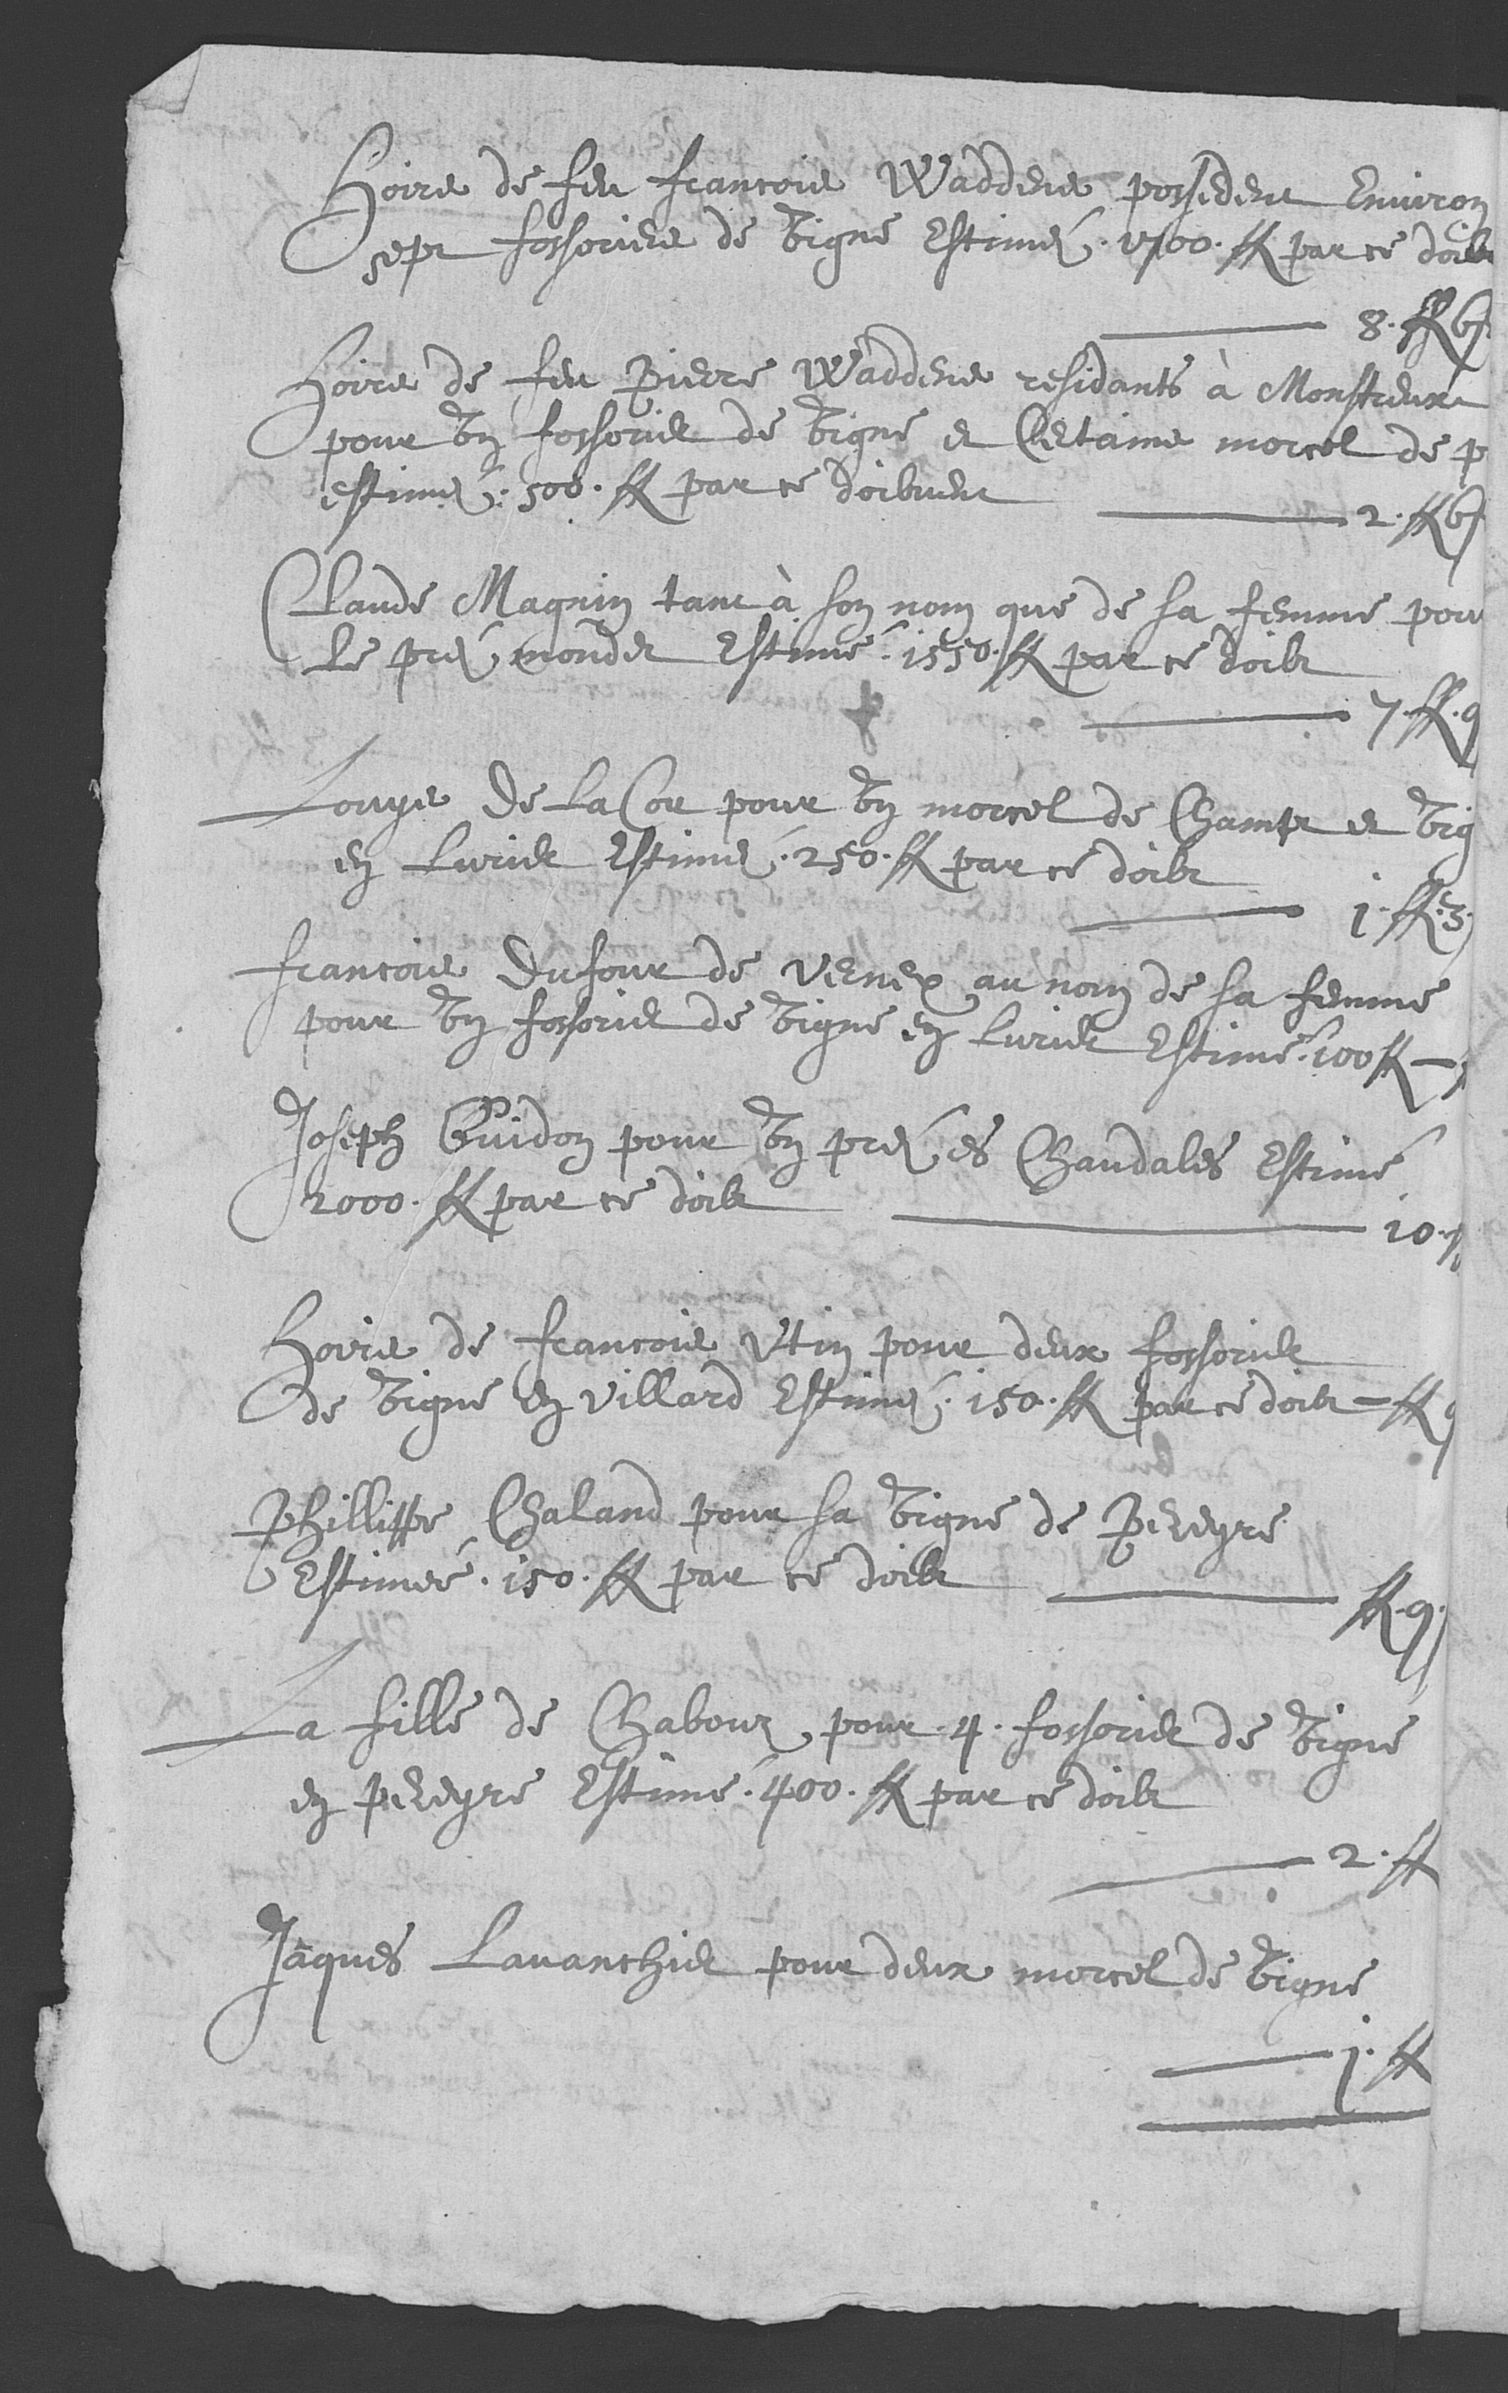 Hoirs de feu francois Waddens possedent Environ
sept fossoriers de vigne Estimés. 1700. ff par ce doib
8. ff 6
Hoirs de feu Pierre Waddens residants à Monstreux
pour un fossorier de vigne et Certains morcel de p
estimés. 500. ff par ce doibvent
2. ff 6
Claude Magnin tant à son nom que de sa femme pour
le prez mondet Estimé. 1550. ff par ce doibt
7. ff. 9
Louys De La Cor pour un morcel de Champt et vig
en Lurier Estimés. 250. ff par ce doibt
1. ff. 3.
francois Dufour de vernex au nom de sa femme
pour un fossorier de vigne en Lurier Estimé. 100 ff
Joseph Guidon pour un prez es Chaudales Estimé
2000. ff par ce doibt
10.
Hoirs de francois Utin pour deux fossorier
de vigne en villard Estimés. 150. ff par ce doibt - ff 9
Phillippe Chaland pour sa vigne de Pereyre
Estimée. 150. ff par ce doibt
ff. 9.
La fille de Chaboux pour. 4. fossorier de vigne
en pereyre Estimé. 400. ff par ce doibt
2. ff
Jaques Lavanchier pour deux morcel de vigne
1. ff